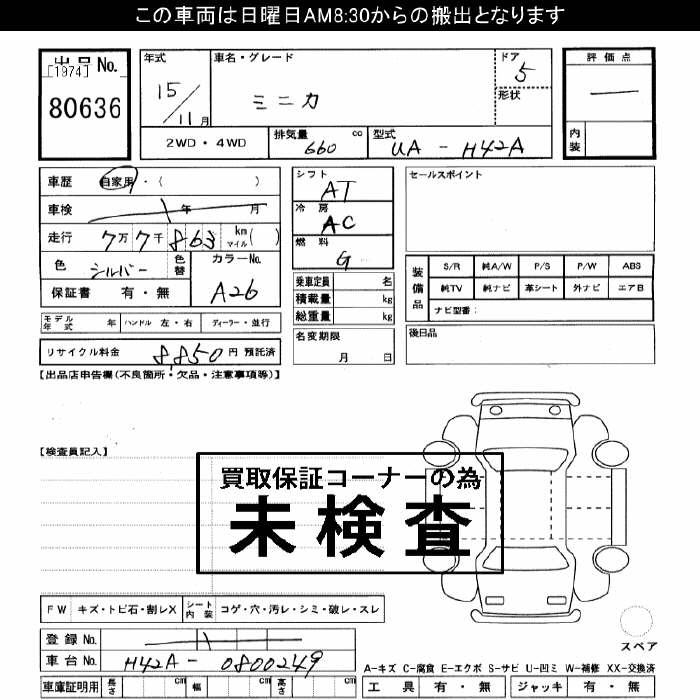 この車両は日曜日AM8:30からの搬出となります
出品No.
[1974]
80636
年式
15/11月
車名・グレード
ミニカ
ドア
5
形状
評価点
—
内装
2WD・4WD
排気量 660 cc
型式 UA-H42A
車歴 自家用・( )
車検 年 月
走行 7万7千863 km マイル( )
色 シルバー 色替
カラーNo.
A26
保証書 有・無
シフト
AT
冷房
AC
燃料
G
セールスポイント
装備品
S/R 純A/W P/S P/W ABS
純TV 純ナビ 革シート 外ナビ エアB
ナビ型番:
乗車定員 名
積載量 kg
総重量 kg
モデル年式 年 ハンドル 左・右 ディーラー・並行
名変期限
月 日
後日品
リサイクル料金 8,850円 預託済
【出品店申告欄(不良箇所・欠品・注意事項等)】
【検査員記入】
買取保証コーナーの為
未検査
FW キズ・トビ石・割レX シート内装 コゲ・穴・汚レ・シミ・破レ・スレ
登録No.
車台No. H42A-0800249
スペア
A-キズ C-腐食 E-エクボ S-サビ U-凹ミ W-補修 XX-交換済
車庫証明用 長さ cm 幅 cm 高さ cm
工具 有・無 ジャッキ 有・無